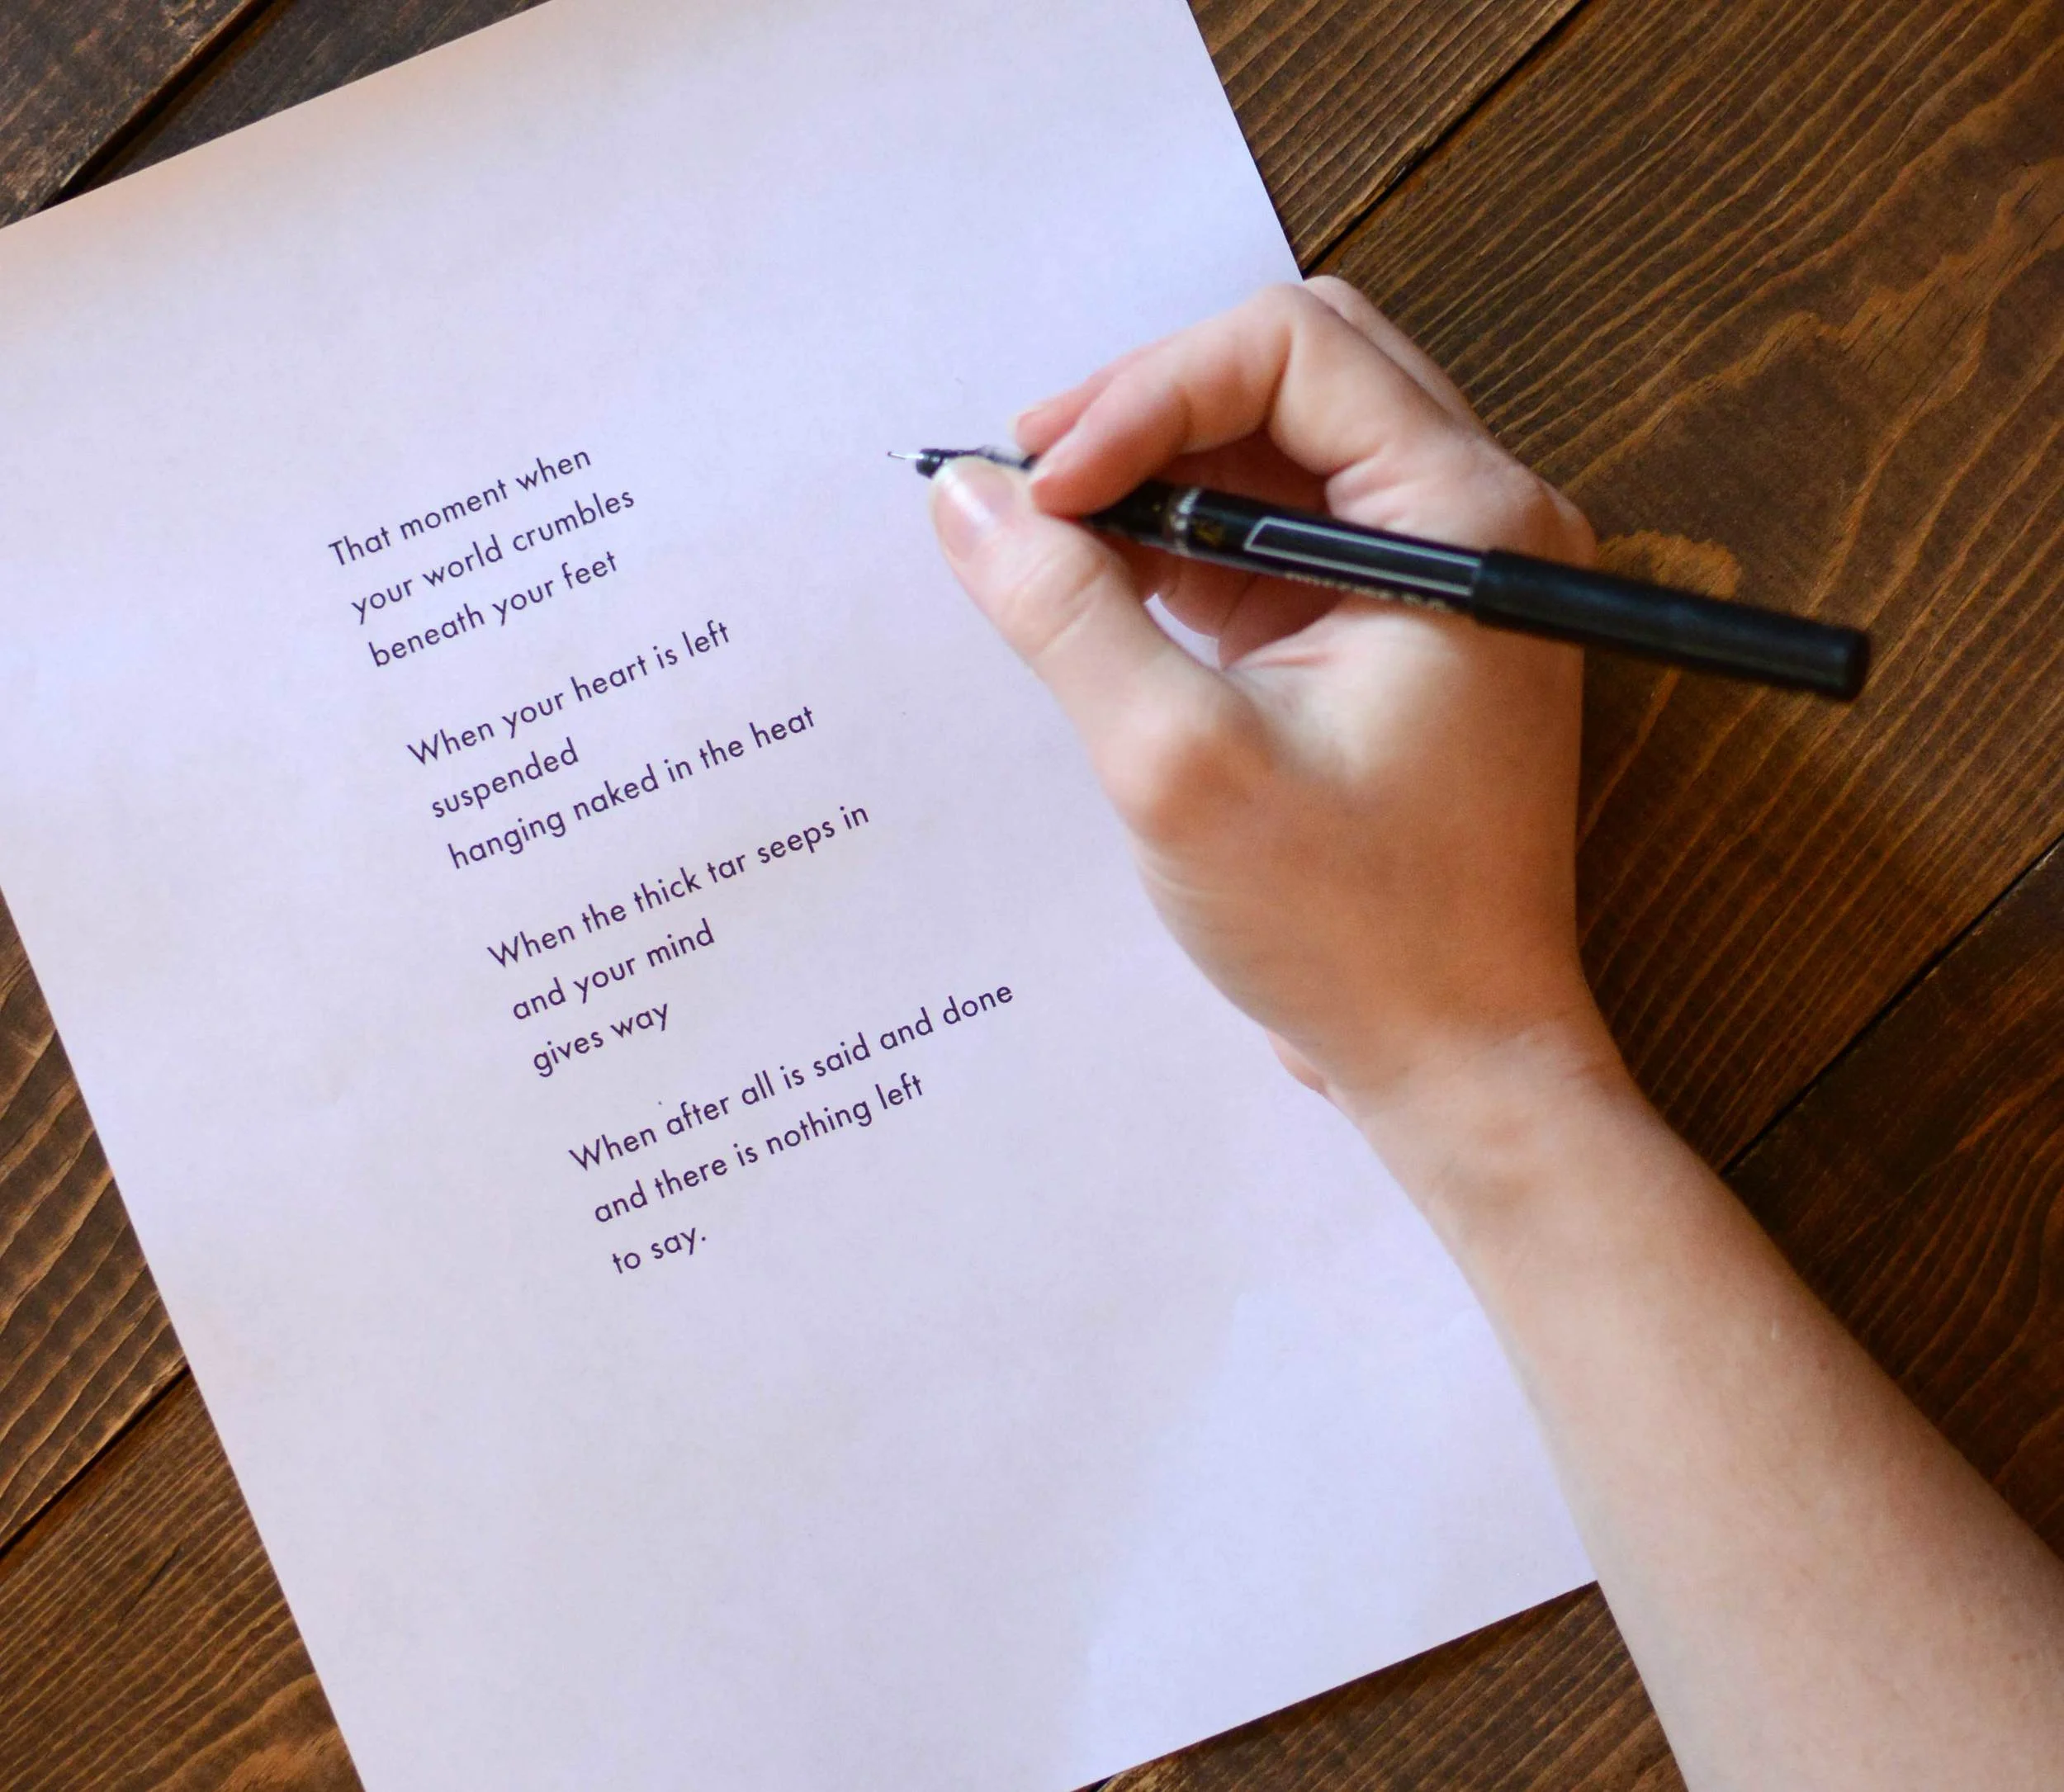 That moment when
your world crumbles
beneath your feet
When your heart is left
suspended
hanging naked in the heat
When the thick tar seeps in
and your mind
gives way
When after all is said and done
and there is nothing left
to say.